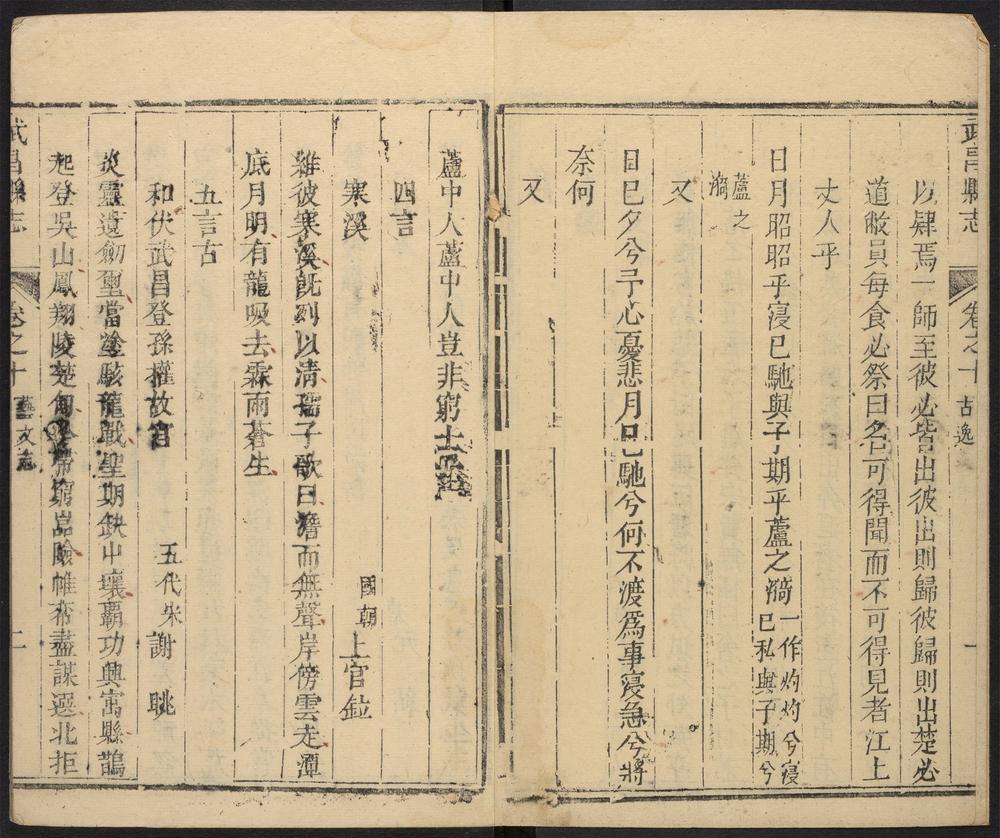 武昌縣志 卷之十 古逸 一
以肆焉一師至彼必皆出彼出則歸彼歸則出楚必
道敝員每食必祭曰名可得聞而不可得見者江上
丈人乎
日月昭昭乎寖已馳與子期乎蘆之漪一作灼灼兮寖已私與子期兮
蘆之漪
又
日已夕兮予心憂悲月已馳兮何不渡爲事寖急兮將
奈何
又
蘆中人蘆中人豈非窮士
四言
寒溪 國朝上官鉝
雖彼寒溪旣列以清孺子歌曰澹而無聲岸傍雲走潭
底月明有龍吸去霖雨蒼生
五言古
和伏武昌登孫權故宮 五代宋謝眺
炎靈遺劒璽當塗駭龍戰聖期缺中壤霸功興寓縣鵲
起登吳山鳳翔陵楚甸 帶窮巖險帷帟盡謀選北拒
武昌縣志 卷之十 藝文志 二